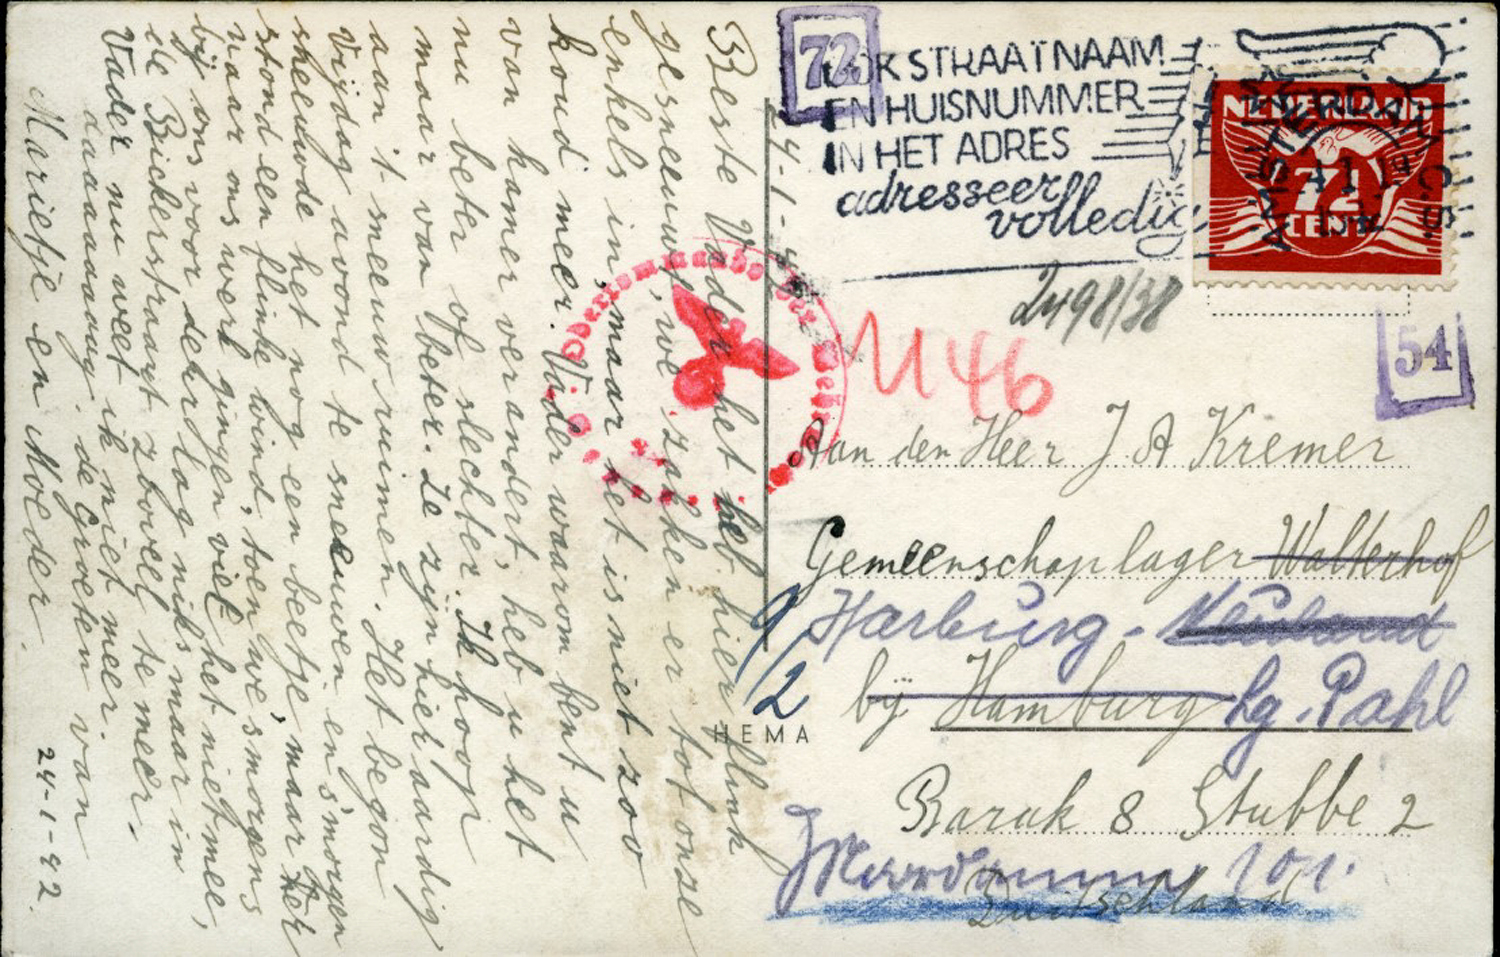 24-1-42
Beste Vader het heb hier flink
gesneeuwt, we zakken er tot onze
enkels in, maar het is niet zoo
koud meer. Vader waarom bent u
van kamer verandert, heb u het
nu beter of slechter. Ik hoop
maar van beter. Ze zijn hier aardig
aan 't sneeuwruimen. Het begon
Vrijdag avond te sneeuwen en 's morgen
sneeuwde het nog een beetje, maar
stond een flinke wind, toen we 's morgens
naar ons werk gingen viel het niet mee,
bij ons voor deur lag niks maar in
de Bickerstraart zoveel te meer.
Vader nu weet ik niet meer.
de Groeten van
Marietje en Moeder.
24-1-42.
72
OOK STRAATNAAM
EN HUISNUMMER
IN HET ADRES
adresseer
volledig
NEDERLAND
7½
CENT
AMSTERDAM C.S.
2498/38
1146
54
Oberkommando der Wehrmacht
Aan den Heer J A Kremer
Gemeenschaplager Walterhof
Harburg - Neuland
bij Hamburg Lg. Pahl
9/2
HEMA
Barak 8 Stubbe 2
101.
Duitschland